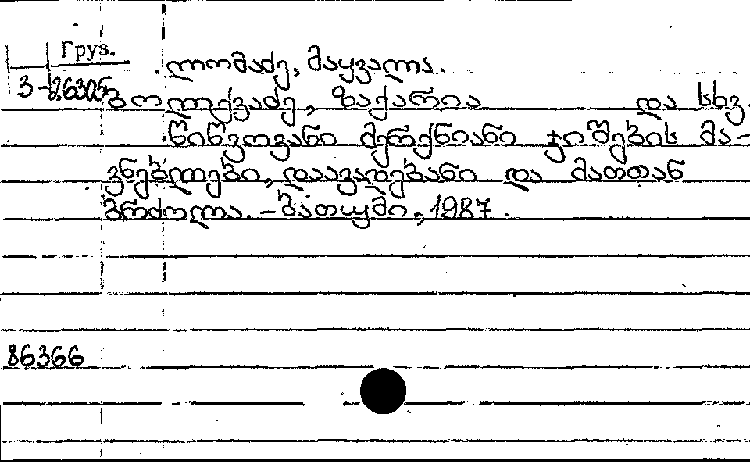 Груз.
ლომაძე, მაყვალა.
3-26305
გოლექვაძე, ზაქარია და სხვ.
წიწვოვანი მერქნიანი ჯიშების მა-
ვნებლები, დაავადებანი და მათთან
ბრძოლა. - ბათუმი, 1987.
86366